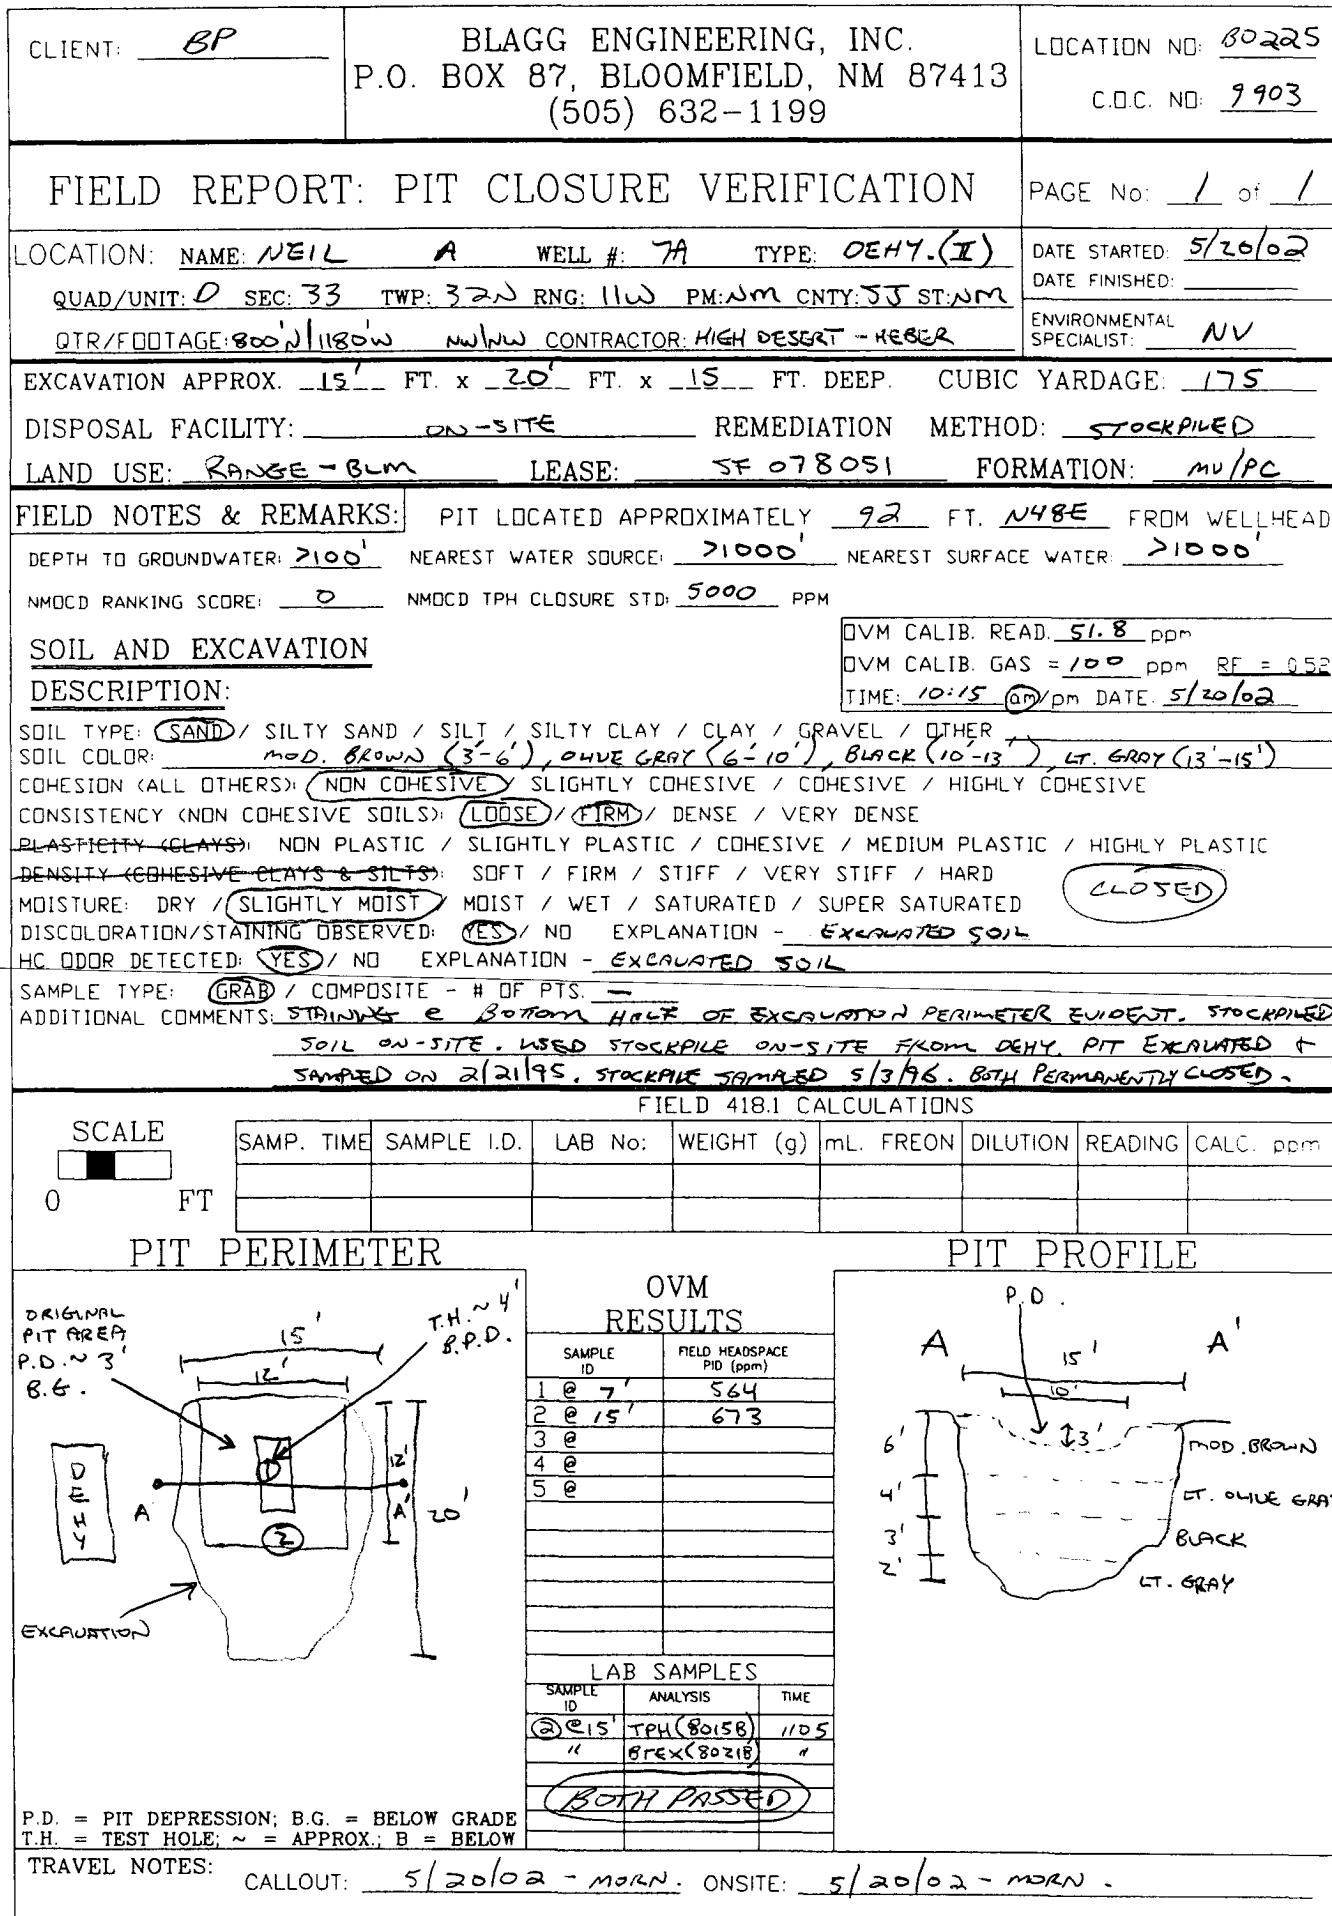 CLIENT: BP
BLAGG ENGINEERING, INC.
P.O. BOX 87, BLOOMFIELD, NM 87413
(505) 632-1199
LOCATION NO: B0225
C.O.C. NO: 9903
FIELD REPORT: PIT CLOSURE VERIFICATION
PAGE No: 1 of 1
LOCATION: NAME: NEIL A WELL #: 7A TYPE: DEHY.(II)
QUAD/UNIT: D SEC: 33 TWP: 32N RNG: 11W PM: NM CNTY: SJ ST: NM
QTR/FOOTAGE: 800'N/1180'W NW/NW CONTRACTOR: HIGH DESERT - HEBER
DATE STARTED: 5/20/02
DATE FINISHED:
ENVIRONMENTAL
SPECIALIST: NV
EXCAVATION APPROX. 15' FT. x 20' FT. x 15 FT. DEEP. CUBIC YARDAGE: 175
DISPOSAL FACILITY: ON-SITE REMEDIATION METHOD: STOCKPILED
LAND USE: RANGE - BLM LEASE: SF 078051 FORMATION: MV/PC
FIELD NOTES & REMARKS: PIT LOCATED APPROXIMATELY 92 FT. N48E FROM WELLHEAD
DEPTH TO GROUNDWATER: >100' NEAREST WATER SOURCE: >1000' NEAREST SURFACE WATER: >1000'
NMOCD RANKING SCORE: 0 NMOCD TPH CLOSURE STD: 5000 PPM
SOIL AND EXCAVATION
DESCRIPTION:
OVM CALIB. READ. 51.8 ppm
OVM CALIB. GAS = 100 ppm RF = 0.52
TIME: 10:15 am/pm DATE. 5/20/02
SOIL TYPE: SAND / SILTY SAND / SILT / SILTY CLAY / CLAY / GRAVEL / OTHER
SOIL COLOR: MOD. BROWN (3'-6'), OLIVE GRAY (6'-10'), BLACK (10'-13'), LT. GRAY (13'-15')
COHESION (ALL OTHERS): NON COHESIVE / SLIGHTLY COHESIVE / COHESIVE / HIGHLY COHESIVE
CONSISTENCY (NON COHESIVE SOILS): LOOSE / FIRM / DENSE / VERY DENSE
PLASTICITY (CLAYS): NON PLASTIC / SLIGHTLY PLASTIC / COHESIVE / MEDIUM PLASTIC / HIGHLY PLASTIC
DENSITY (COHESIVE CLAYS & SILTS): SOFT / FIRM / STIFF / VERY STIFF / HARD
CLOSED
MOISTURE: DRY / SLIGHTLY MOIST / MOIST / WET / SATURATED / SUPER SATURATED
DISCOLORATION/STAINING OBSERVED: YES / NO EXPLANATION - EXCAVATED SOIL
HC ODOR DETECTED: YES / NO EXPLANATION - EXCAVATED SOIL
SAMPLE TYPE: GRAB / COMPOSITE - # OF PTS. —
ADDITIONAL COMMENTS: STAINING @ BOTTOM HALF OF EXCAVATION PERIMETER EVIDENT. STOCKPILED
SOIL ON-SITE. USED STOCKPILE ON-SITE FROM DEHY. PIT EXCAVATED &
SAMPLED ON 2/21/95. STOCKPILE SAMPLED 5/3/96. BOTH PERMANENTLY CLOSED.
FIELD 418.1 CALCULATIONS
SCALE
0 FT
SAMP. TIME SAMPLE I.D. LAB No: WEIGHT (g) mL. FREON DILUTION READING CALC. ppm
PIT PERIMETER
ORIGINAL
PIT AREA
P.D. ~ 3'
B.G.
T.H. ~ 4'
B.P.D.
15'
12'
12'
20'
DEHY
A
A'
1
2
EXCAVATION
P.D. = PIT DEPRESSION; B.G. = BELOW GRADE
T.H. = TEST HOLE; ~ = APPROX.; B = BELOW
OVM
RESULTS
SAMPLE ID FIELD HEADSPACE PID (ppm)
1 @ 7' 564
2 @ 15' 673
3 @
4 @
5 @
LAB SAMPLES
SAMPLE ID ANALYSIS TIME
2 @ 15' TPH (8015B) 1105
" BTEX (8021B) "
BOTH PASSED
PIT PROFILE
P.D.
A A'
15'
10'
3'
6' MOD. BROWN
4' LT. OLIVE GRAY
3' BLACK
2' LT. GRAY
TRAVEL NOTES: CALLOUT: 5/20/02 - MORN. ONSITE: 5/20/02 - MORN.